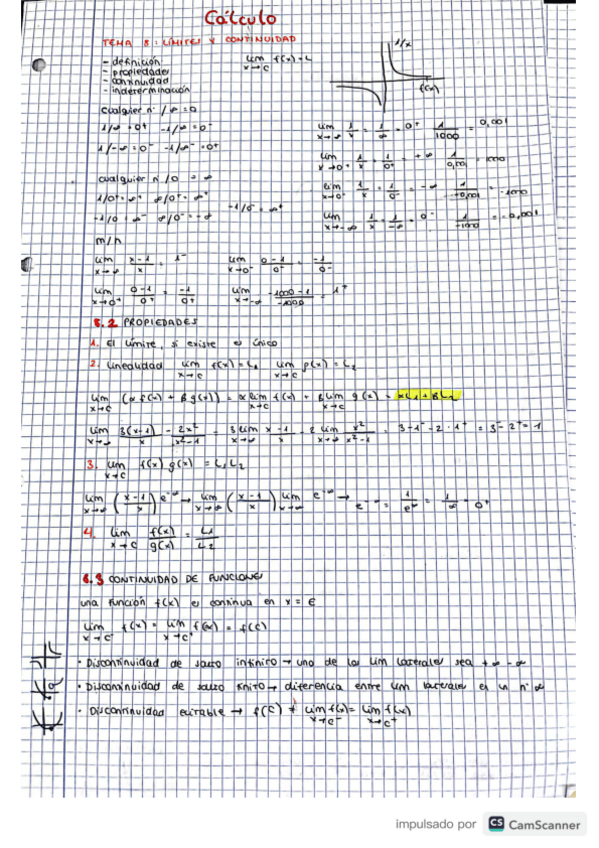 Cálculo
TEMA 8: LÍMITES Y CONTINUIDAD
- definición
- propiedades
- continuidad
- indeterminación
lim f(x) = L
x→c
1/x
f(x)
cualquier nº / ∞ = 0
1/∞ = 0⁺ -1/∞ = 0⁻
1/-∞ = 0⁻ -1/-∞ = 0⁺
lim 1/x = 1/∞ = 0⁺ 1/1000 = 0,001
x→∞
lim 1/x = 1/0⁺ = +∞ 1/0,001 = 1000
x→0⁺
cualquier n/0 = ∞
lim 1/x = 1/0⁻ = -∞ 1/-0,001 = -1000
x→0⁻
lim 1/x = 1/-∞ = 0⁻ 1/-1000 = -0,001
x→-∞
m/n
lim x-1/x = 1⁻
x→∞
lim 0-1/0⁻ = -1/0⁻
x→0⁻
lim 0-1/0⁺ = -1/0⁺
x→0⁺
lim -1000-1/-1000 = 1⁺
x→-∞
8.2 PROPIEDADES
1. El límite, si existe es único
2. Linealidad lim f(x) = L₁ lim g(x) = L₂
x→c x→c
lim (α f(x) + β g(x)) = α lim f(x) + β lim g(x) = αL₁ + βL₂
x→c x→c x→c
lim 3(x-1)/x - 2x²/x²-1 = 3 lim x-1/x - 2 lim x²/x²-1 = 3·1⁻ - 2·1⁺ = 3-2 = 1
x→∞ x→∞ x→∞
3. lim f(x) g(x) = L₁L₂
x→c
4. lim f(x)/g(x) = L₁/L₂
x→c
8.3 CONTINUIDAD DE FUNCIONES
una función f(x) es continua en x = c
lim f(x) = lim f(x) = f(c)
x→c⁻ x→c⁺
· Discontinuidad de salto infinito → uno de los lim laterales sea +∞ -∞
· Discontinuidad de salto finito → diferencia entre lim laterales es un nº
· Discontinuidad evitable → f(c) ≠ lim f(x) = lim f(x)
x→c⁻ x→c⁺
impulsado por CS CamScanner